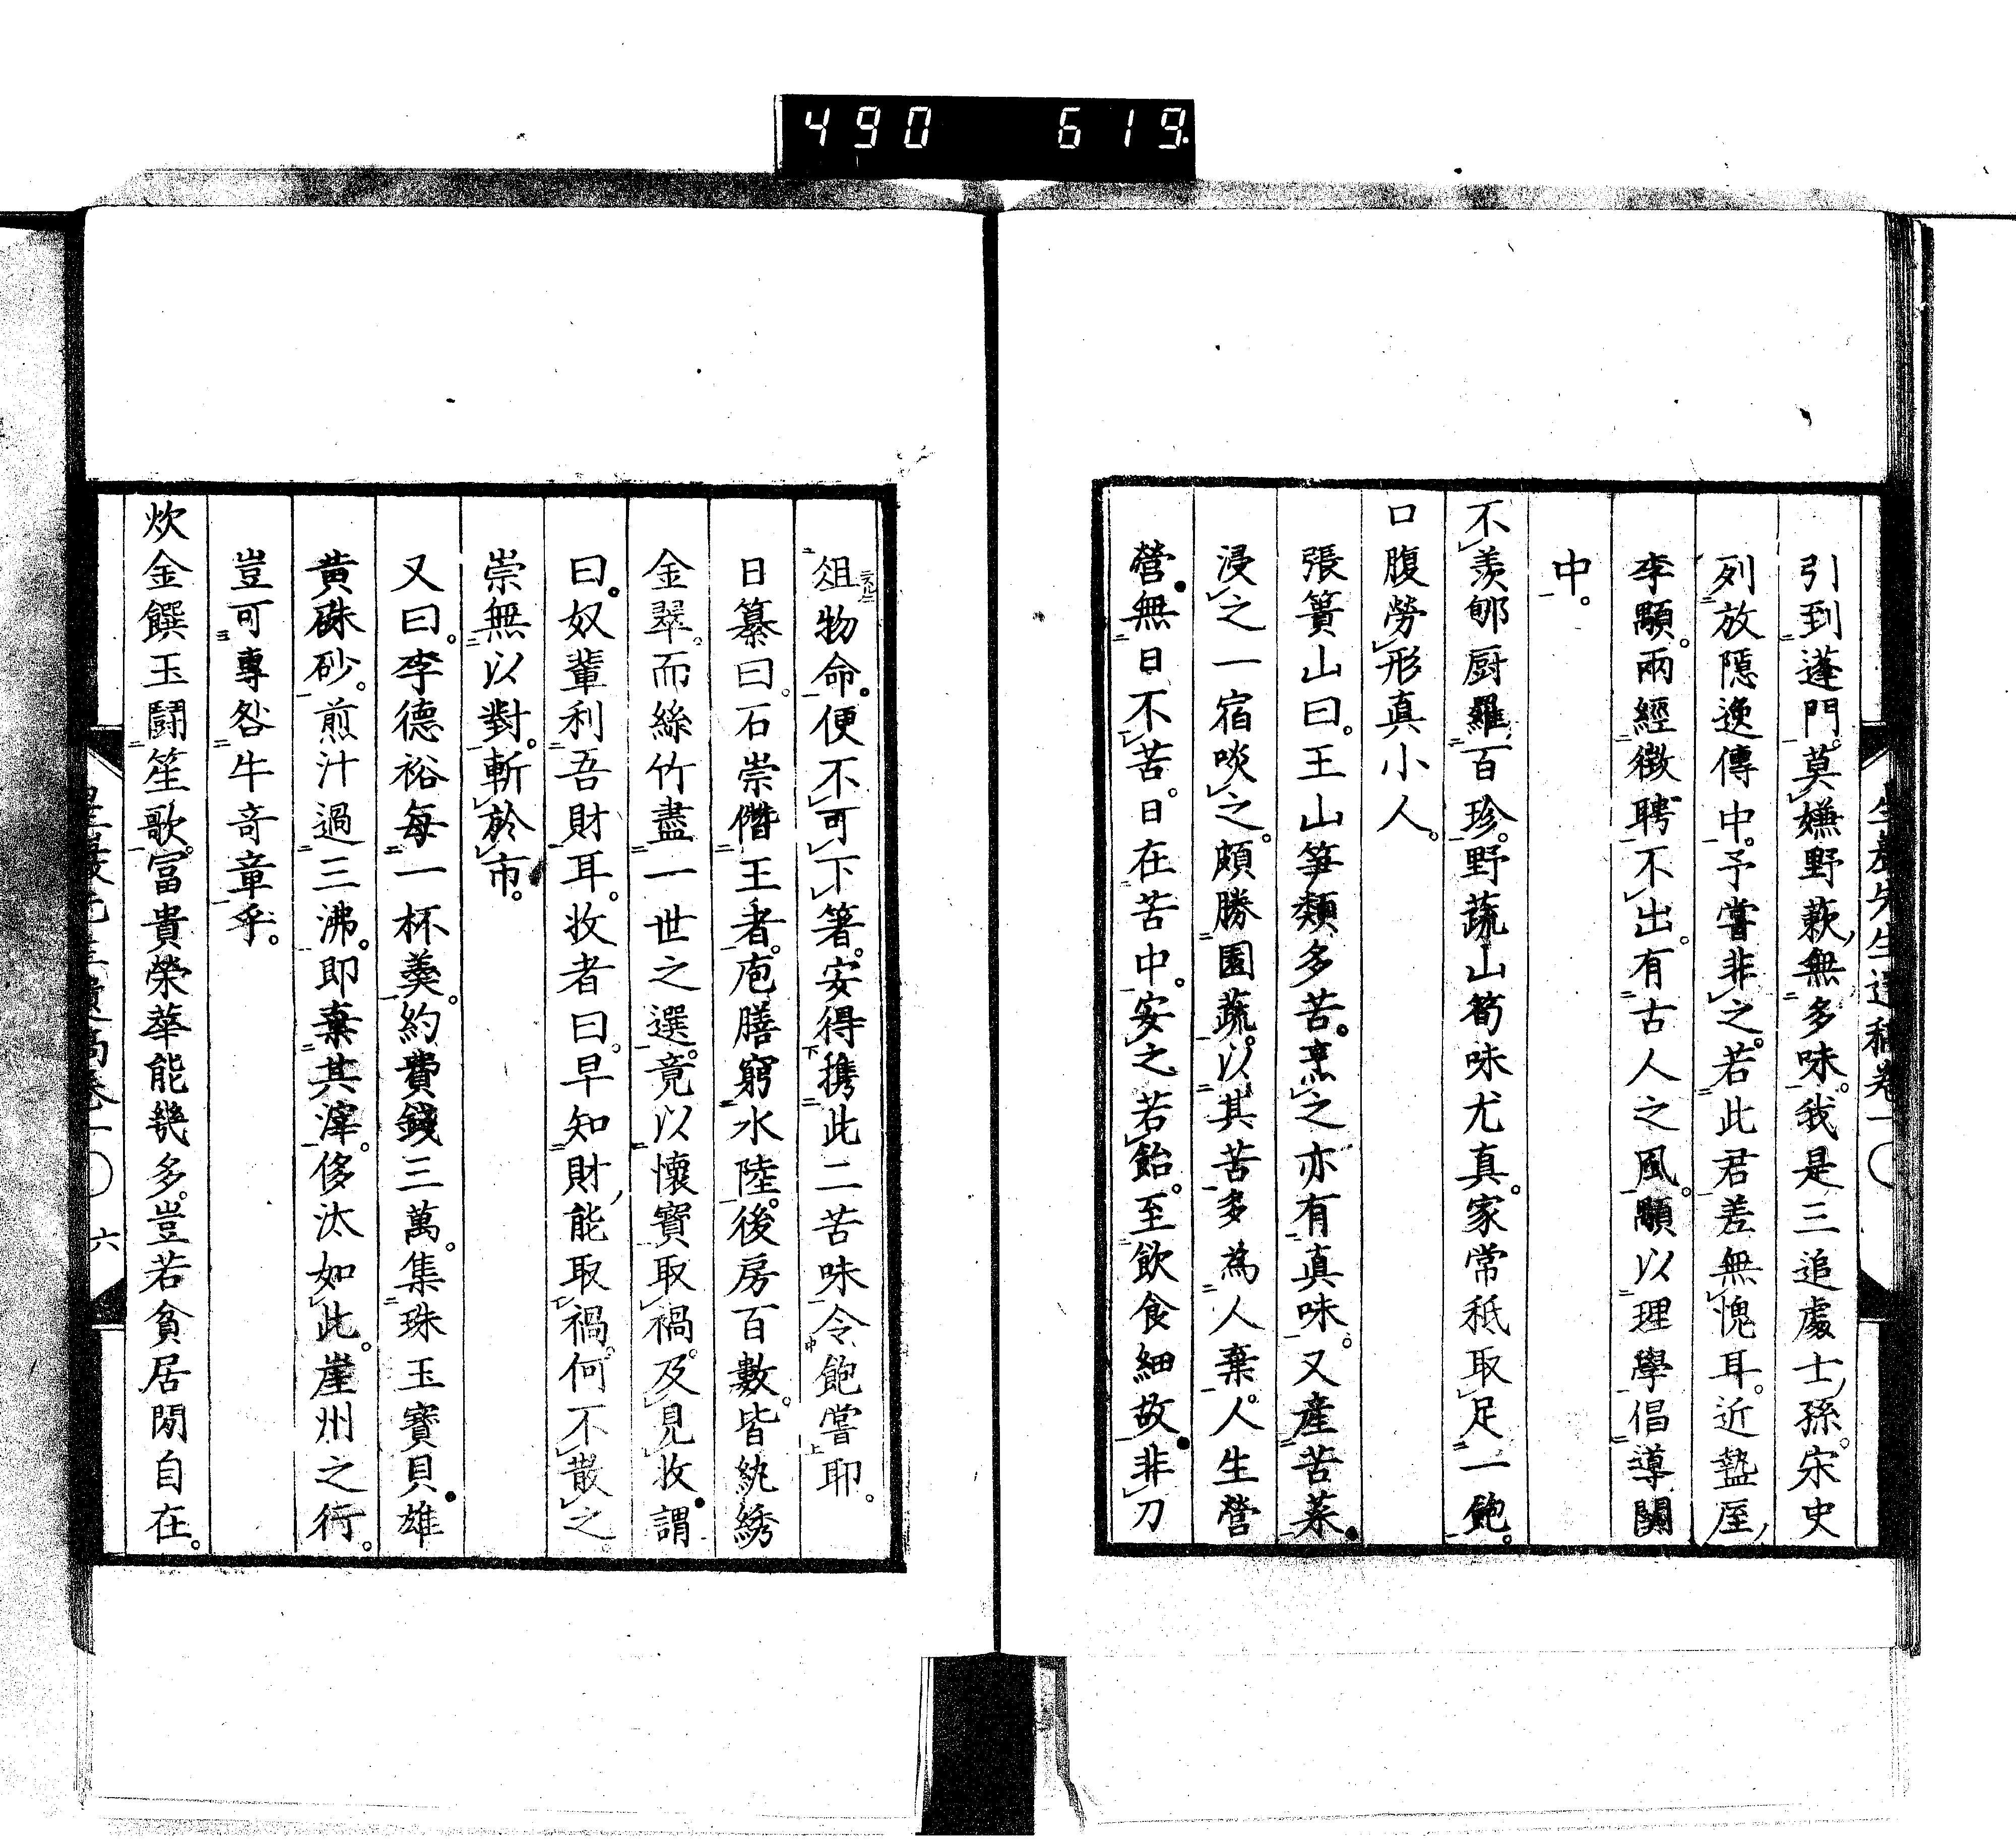 490 619
引到蓬門。莫嫌野蔌無多味。我是三追處士孫。宋史
列放隱逸傳中。予嘗非之。若此君差無愧耳。近盩厔
李顒。兩經徵聘不出。有古人之風。顒以理學倡導關
中。
不羨郇厨羅百珍。野蔬山筍味尤真。家常秪取足一飽。
口腹勞形真小人。
張簣山曰。王山笋類多苦。烹之亦有真味。又產苦菜。
浸之一宿啖之。頗勝園蔬。以其苦多為人棄。人生營
營。無日不苦。日在苦中。安之若飴。至飲食細故。非刀
俎物命。便不可下箸。安得携此二苦味令飽嘗耶。
日纂曰。石崇僭王者。庖膳窮水陸。後房百數。皆紈綉
金翠。而絲竹盡一世之選。竟以懷寶取禍。及見收。謂
曰。奴輩利吾財耳。收者曰。早知財能取禍。何不散之。
崇無以對。斬於市。
又曰。李德裕每一杯羮。約費錢三萬。集珠玉寶貝。雄
黃硃砂。煎汁過三沸。即棄其滓。侈汰如此。崖州之行。
豈可專咎牛奇章乎。
炊金饌玉鬪笙歌。冨貴榮華能幾多。豈若貧居閑自在。
六